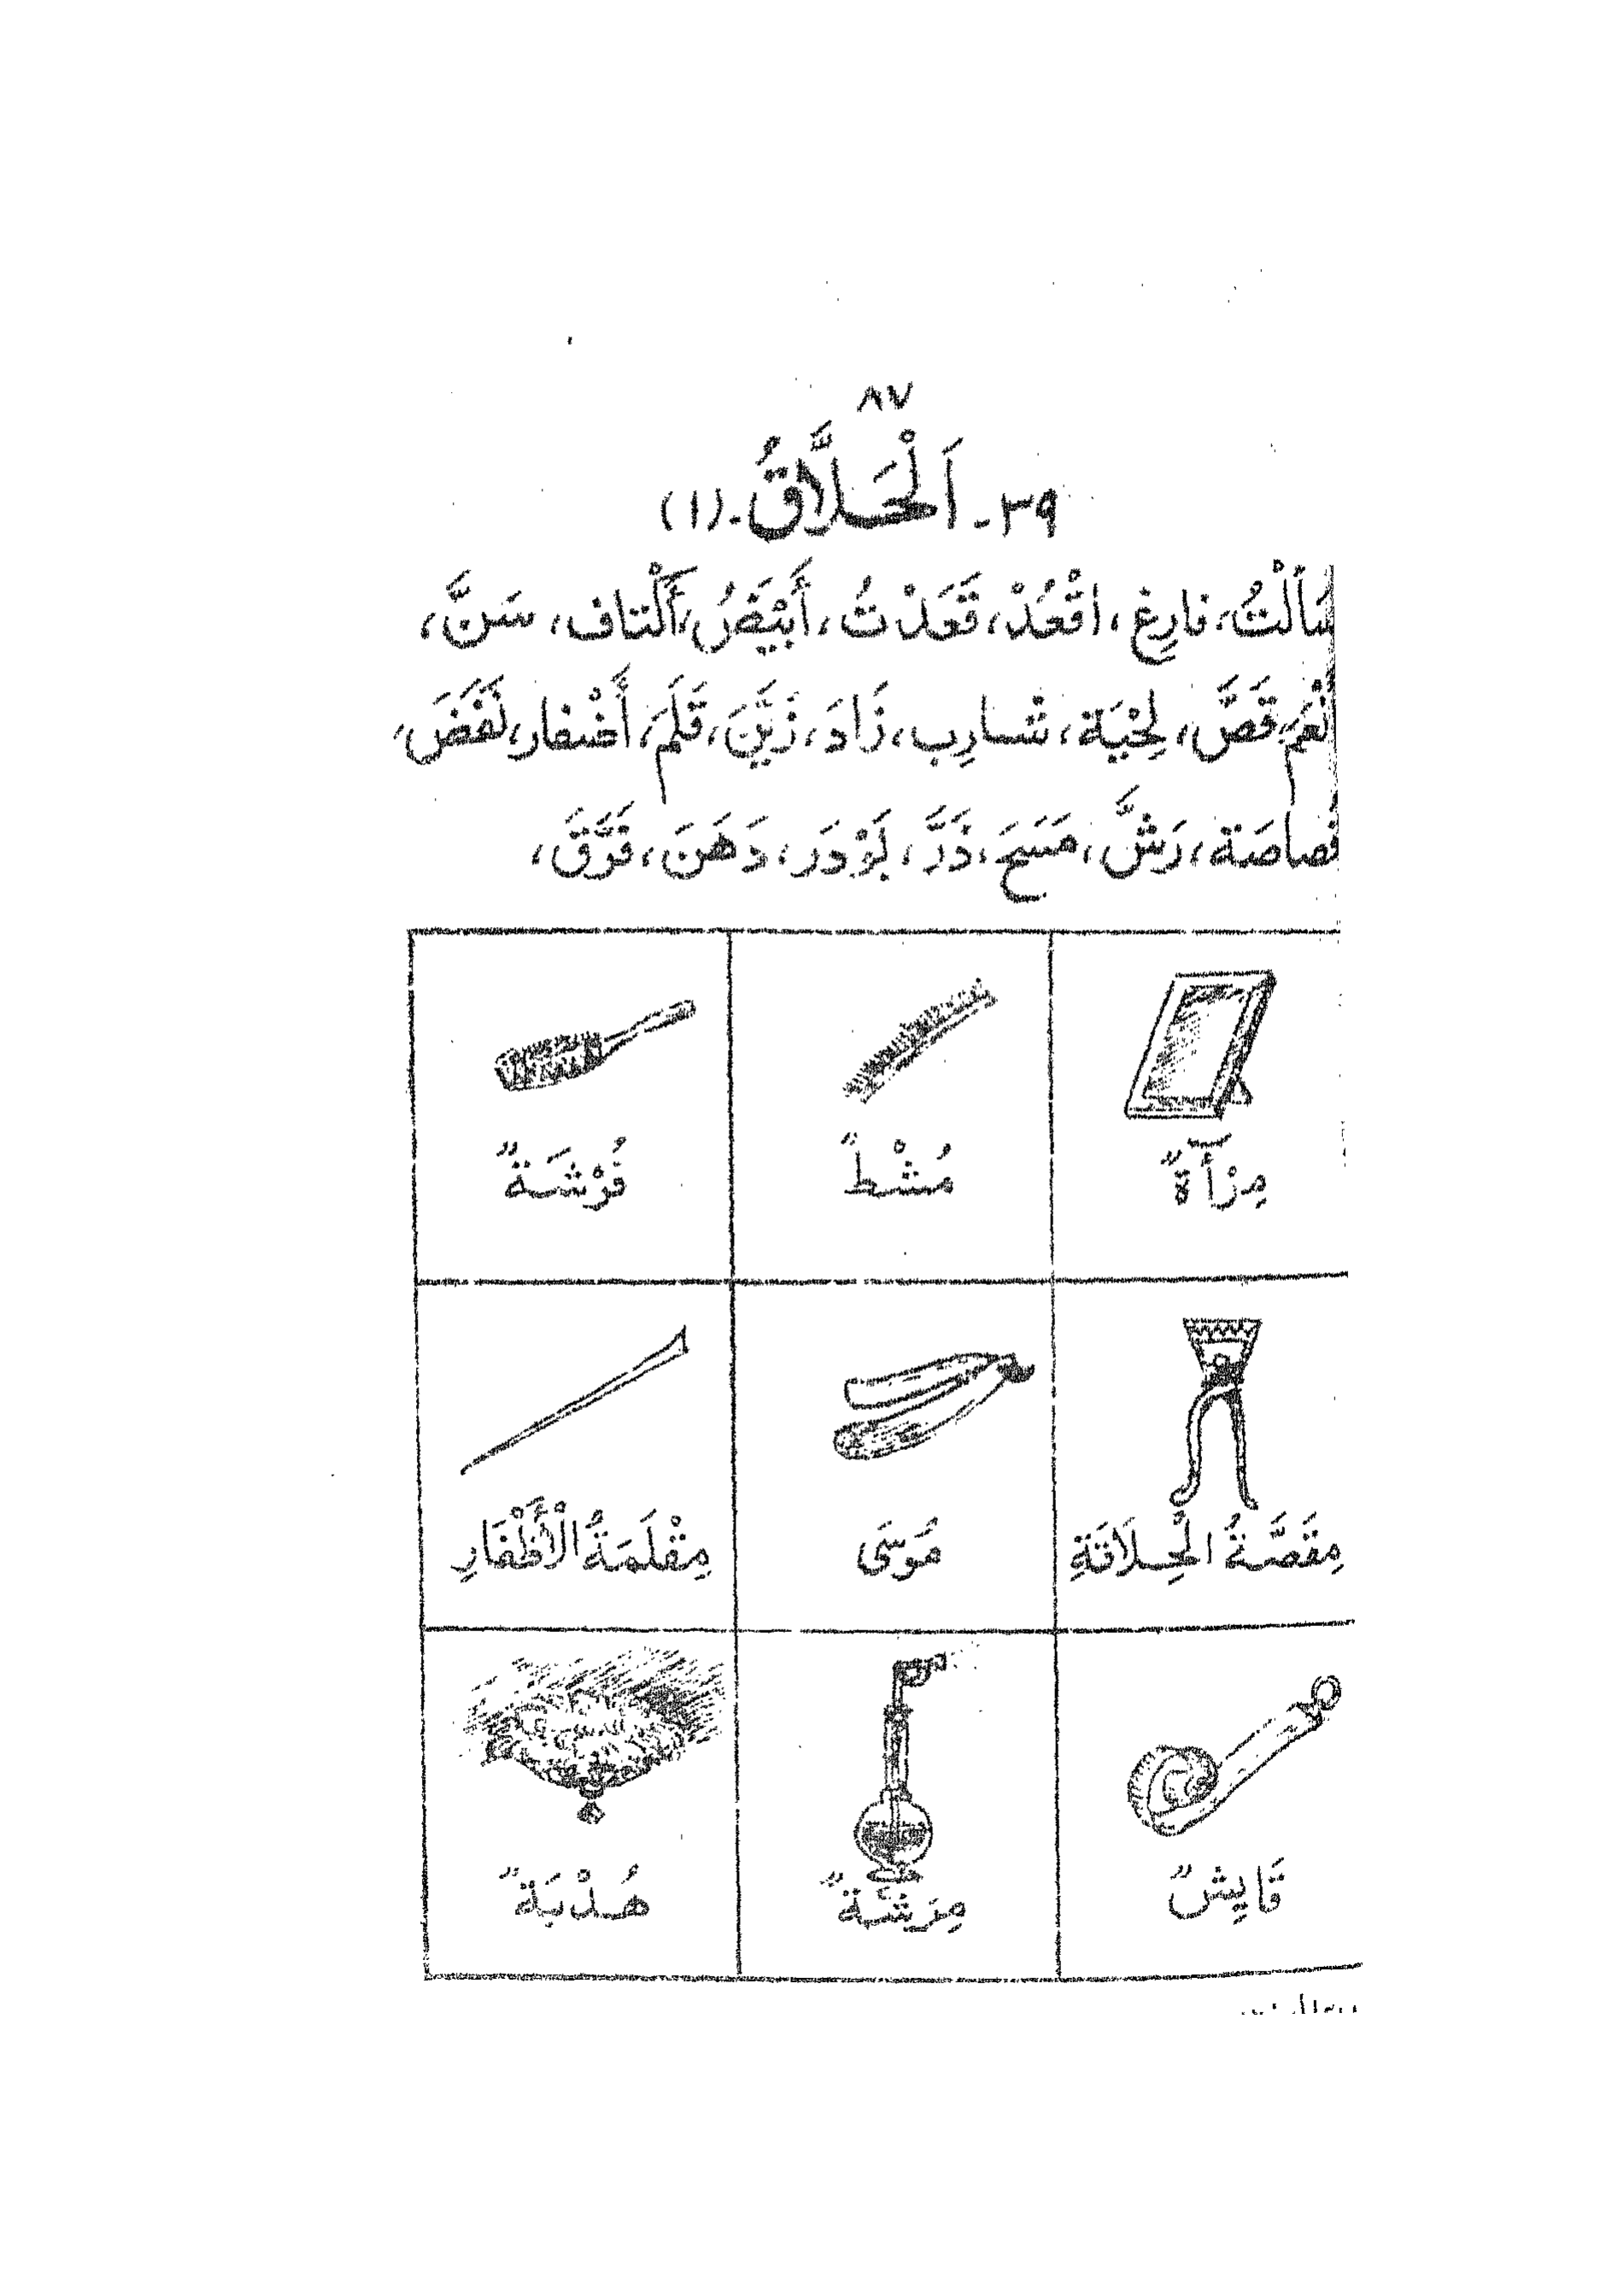 ٨٧
٣٩- اَلْحَلَّاقُ.(١)
سَأَلْتُ، فارِغ، اقْعُدْ، قَعَدْتُ، أَبْيَضُ، أَكْتاف، سَنَّ،
نَعُمَ، قَصَّ، لِحْيَة، شارِب، زَادَ، زَيَّنَ، قَلَّمَ، أَضْفار، نَفَضَ،
قُصاصَة، رَشَّ، مَسَحَ، ذَرَّ، بَوْدَر، دَهَنَ، فَرَّقَ،
مِرْآةٌ
مُشْطٌ
فُرْشَةٌ
مِقَصَّةُ الْحِلَاقَةِ
مُوسَى
مِقْلَمَةُ الْأَظْفَارِ
قَايِشٌ
مِرَشَّةٌ
هُدْبَةٌ